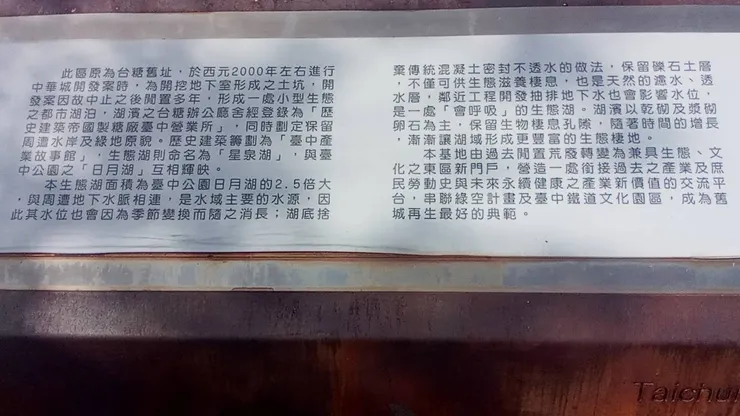 此區原為台糖舊址，於西元2000年左右進行
中華城開發案時，為開挖地下室形成之土坑，開
發案因故中止之後閒置多年，形成一處小型生態
之都市湖泊，湖濱之台糖辦公廳舍經登錄為「歷
史建築帝國製糖廠臺中營業所」，同時劃定保留
周遭水岸及綠地原貌。歷史建築籌劃為「臺中產
業故事館」，生態湖則命名為「星泉湖」，與臺
中公園之「日月湖」互相輝映。
本生態湖面積為臺中公園日月湖的2.5倍大
，與周遭地下水脈相連，是水域主要的水源，因
此其水位也會因為季節變換而隨之消長；湖底捨
棄傳統混凝土密封不透水的做法，保留礫石土層
，不僅可供生態滋養棲息，也是天然的濾水、透
水層，鄰近工程開發抽排地下水也會影響水位，
是一處「會呼吸」的生態湖。湖濱以乾砌及漿砌
卵石為主，保留生物棲息孔隙，隨著時間的增長
，漸漸讓湖域形成更豐富的生態棲地。
本基地由過去閒置荒廢轉變為兼具生態、文
化之東區新門戶，營造一處銜接過去之產業及庶
民勞動史與未來永續健康之產業新價值的交流平
台，串聯綠空計畫及臺中鐵道文化園區，成為舊
城再生最好的典範。
Taichun